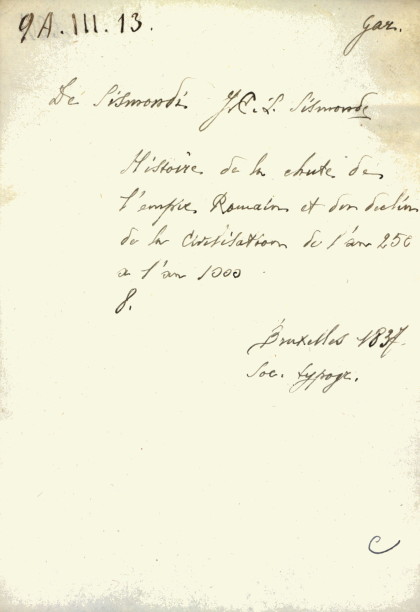 9A.III.13. Gar.
De Sismondi J.C.L. Sismonde
Histoire de la chute de
l'empire Romain et du declin
de la Civilisation de l'an 250
a l'an 1000
8.
Bruxelles 1837.
Soc. typogr.
C